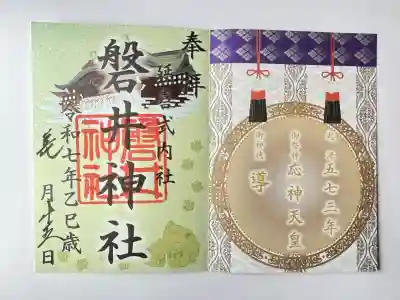 奉拝
延喜式内社
磐井神社
磐井
神社
令和七年乙巳歳
月十五日
起源 五七三年
御祭神 応神天皇
御神徳 導